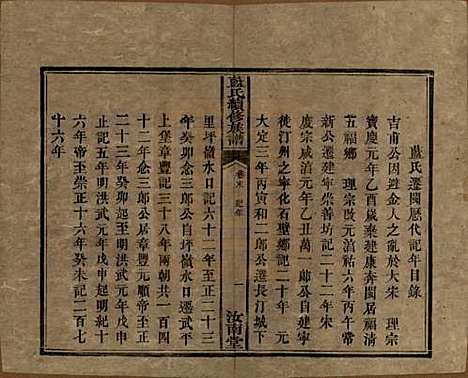 藍氏遷閩歷代記年目錄
吉甫公因避金人之亂於大宋　理宗
寶慶元年乙酉歲棄建康奔閩居福清
五福鄉　理宗改元淳祐六年丙午常
公自福清遷居建寧崇善坊記二十二年
慶宗咸淳元年乙丑萬一郎公自建寧
徙汀州之寧化石壁鄉記二十年　元
大定三年丙寅和二郎公遷長汀城下
里坪嶺水日記六十二年至二十三
年癸卯念三郎公自坪嶺水遷武平
上堡章豐記三十八年兩朝共一百四
十二年念三郎公居章豐元順帝至正
二十三年癸卯起至明洪武元年戊申
止記五年明洪武元年戊申起明紀十
六帝至崇正十六年癸未記二百七
十六年
藍氏續修族譜
卷末　記年
一
汝南堂